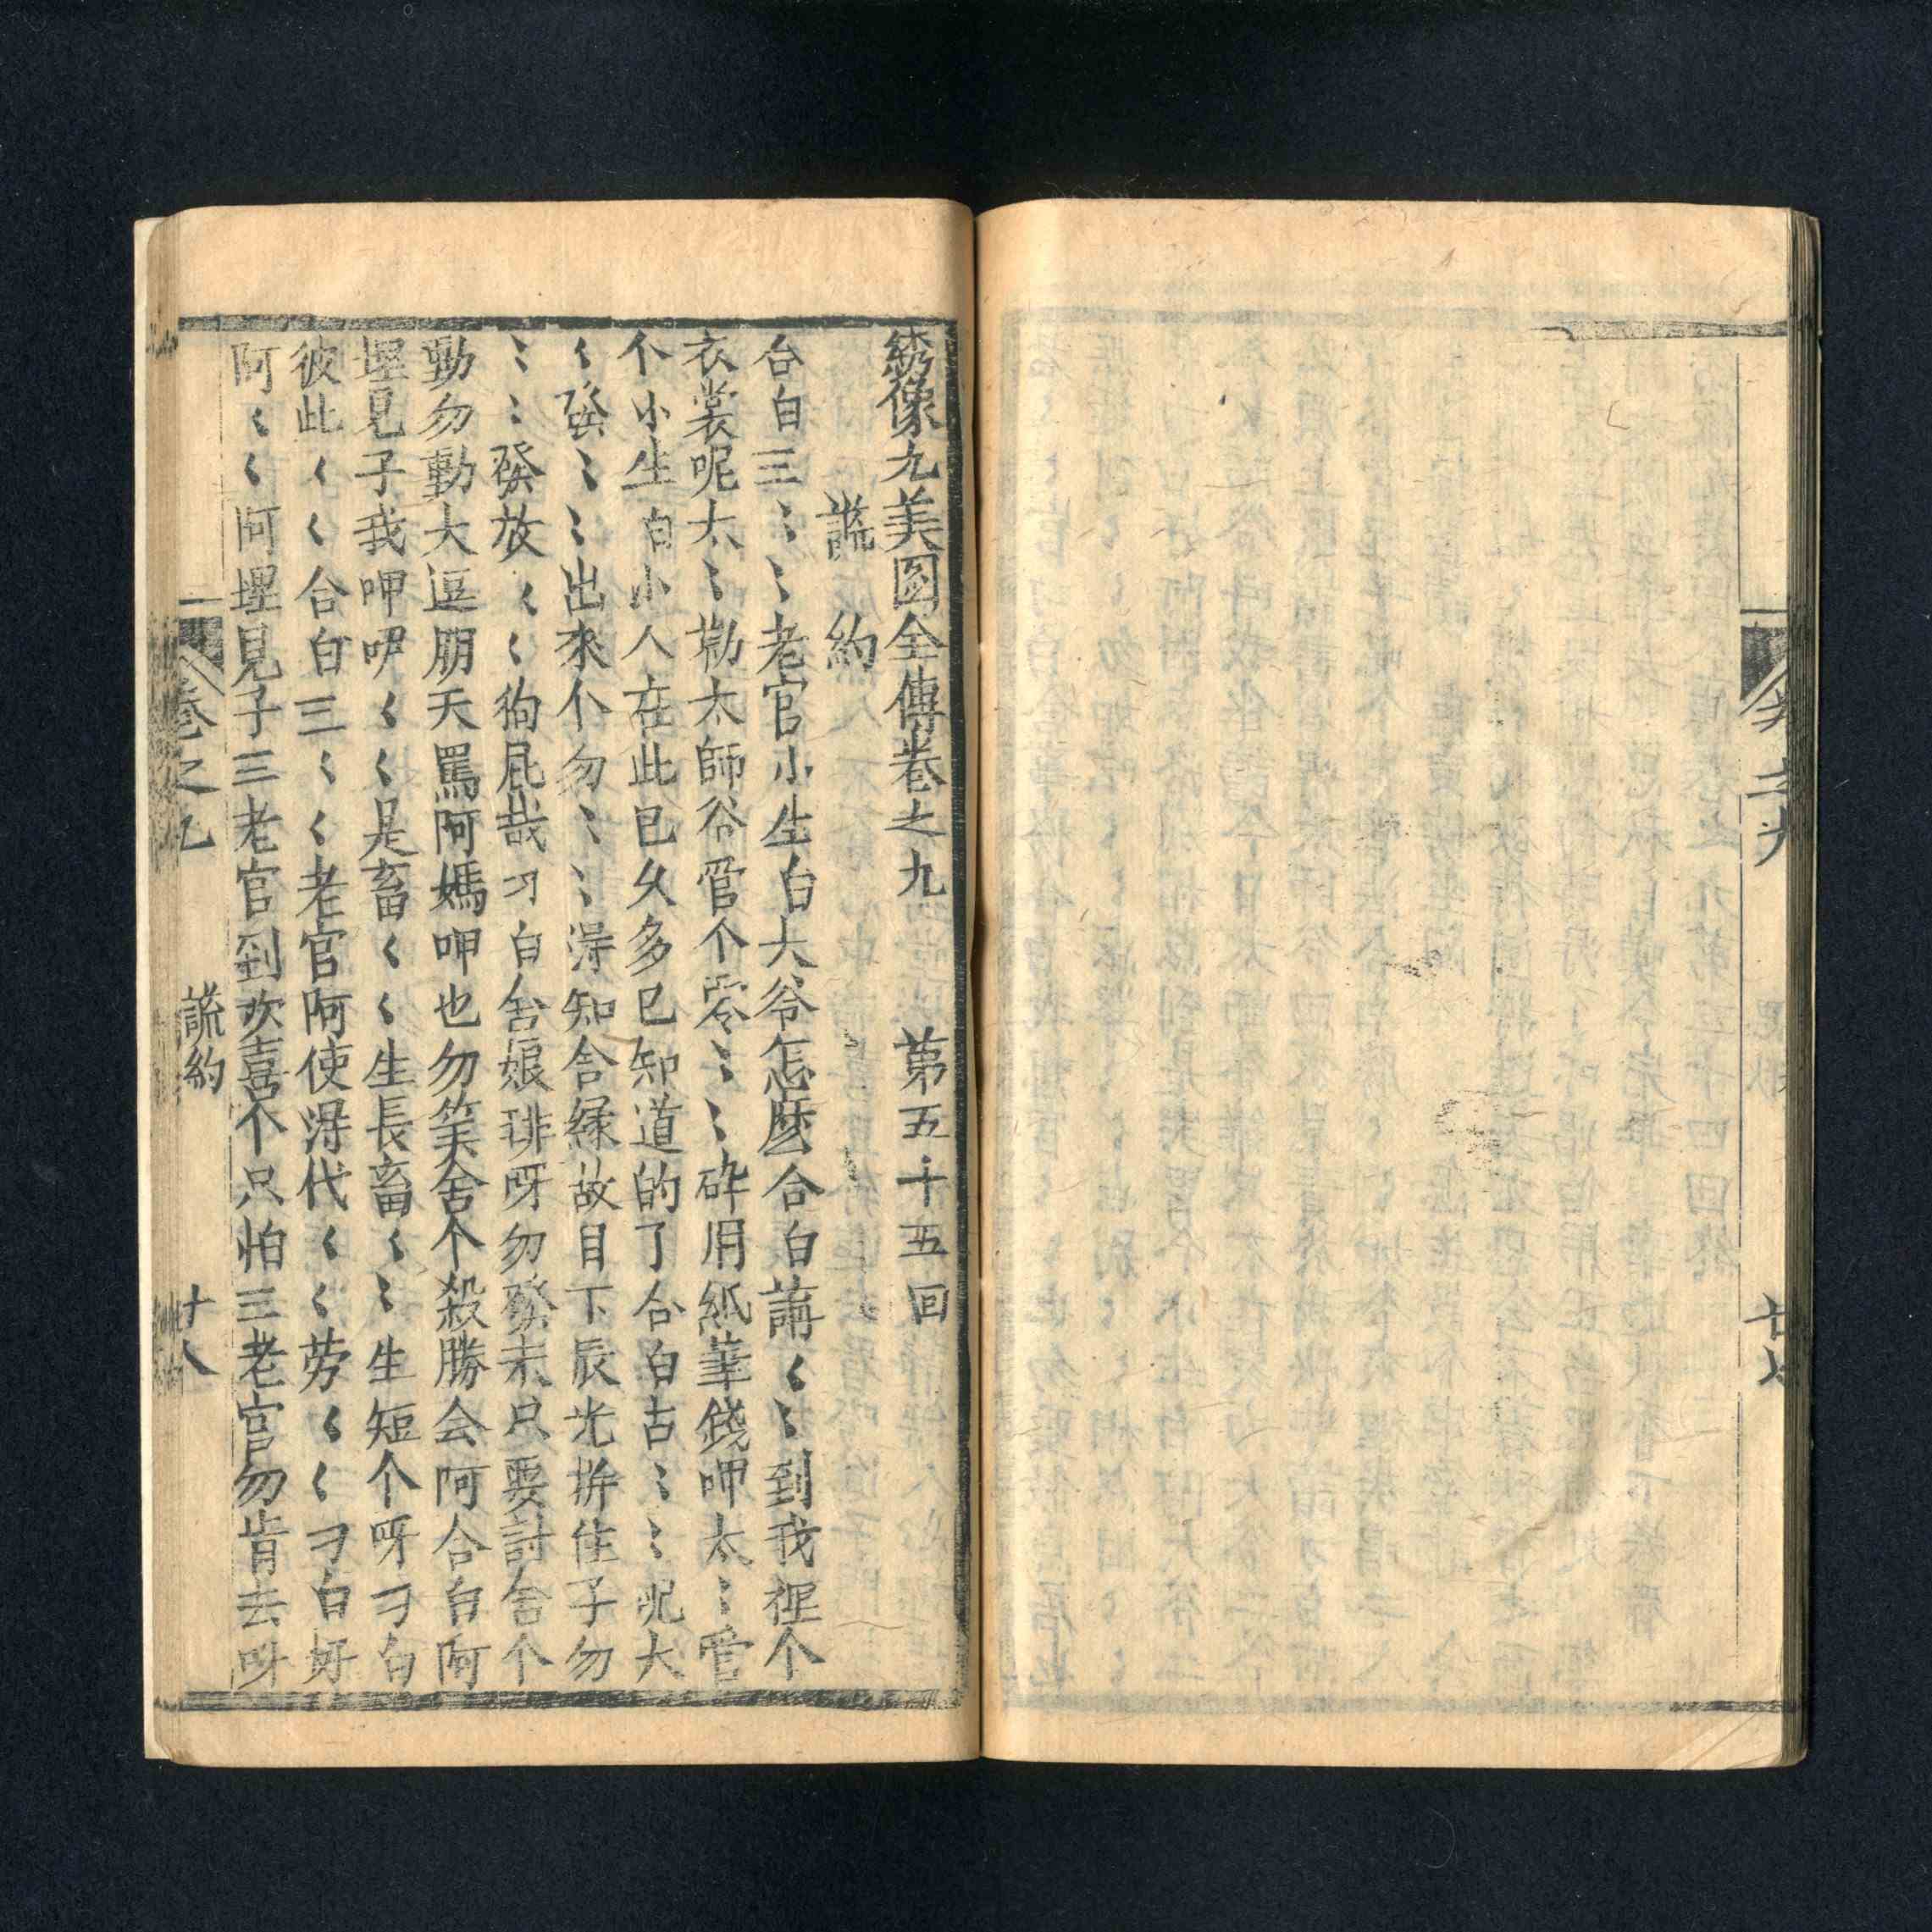 卷之九
十七
綉像九美図全傳卷之九 第五十五回
謊約
合白三〻〻老官小生白大爷怎麽合白講〻〻到我裡个
衣裳呢太〻勷太師爷官个零〻〻碎用紙筆錢呷太〻官
个小生白小人在此已久多已知道的了合白古〻〻呢大
〻發〻〻出來个勿〻〻得知舍緑故目下辰光拚住子勿
〻〻發放〻〻狗屁哉刁白舍娘琲呀勿發未只要討舍个
動勿動大逗朋天罵阿媽呷也勿笑舍个殺勝会阿合白阿
埋見子我呷呷〻〻是畜〻〻生長畜〻〻生短个呀刁白
彼此〻〻合白三〻〻老官阿使得代〻〻劳〻〻刁白好
阿〻〻阿埋見子三老官到欢喜个只怕三老官勿肯去呀
卷之九 謊約 十八